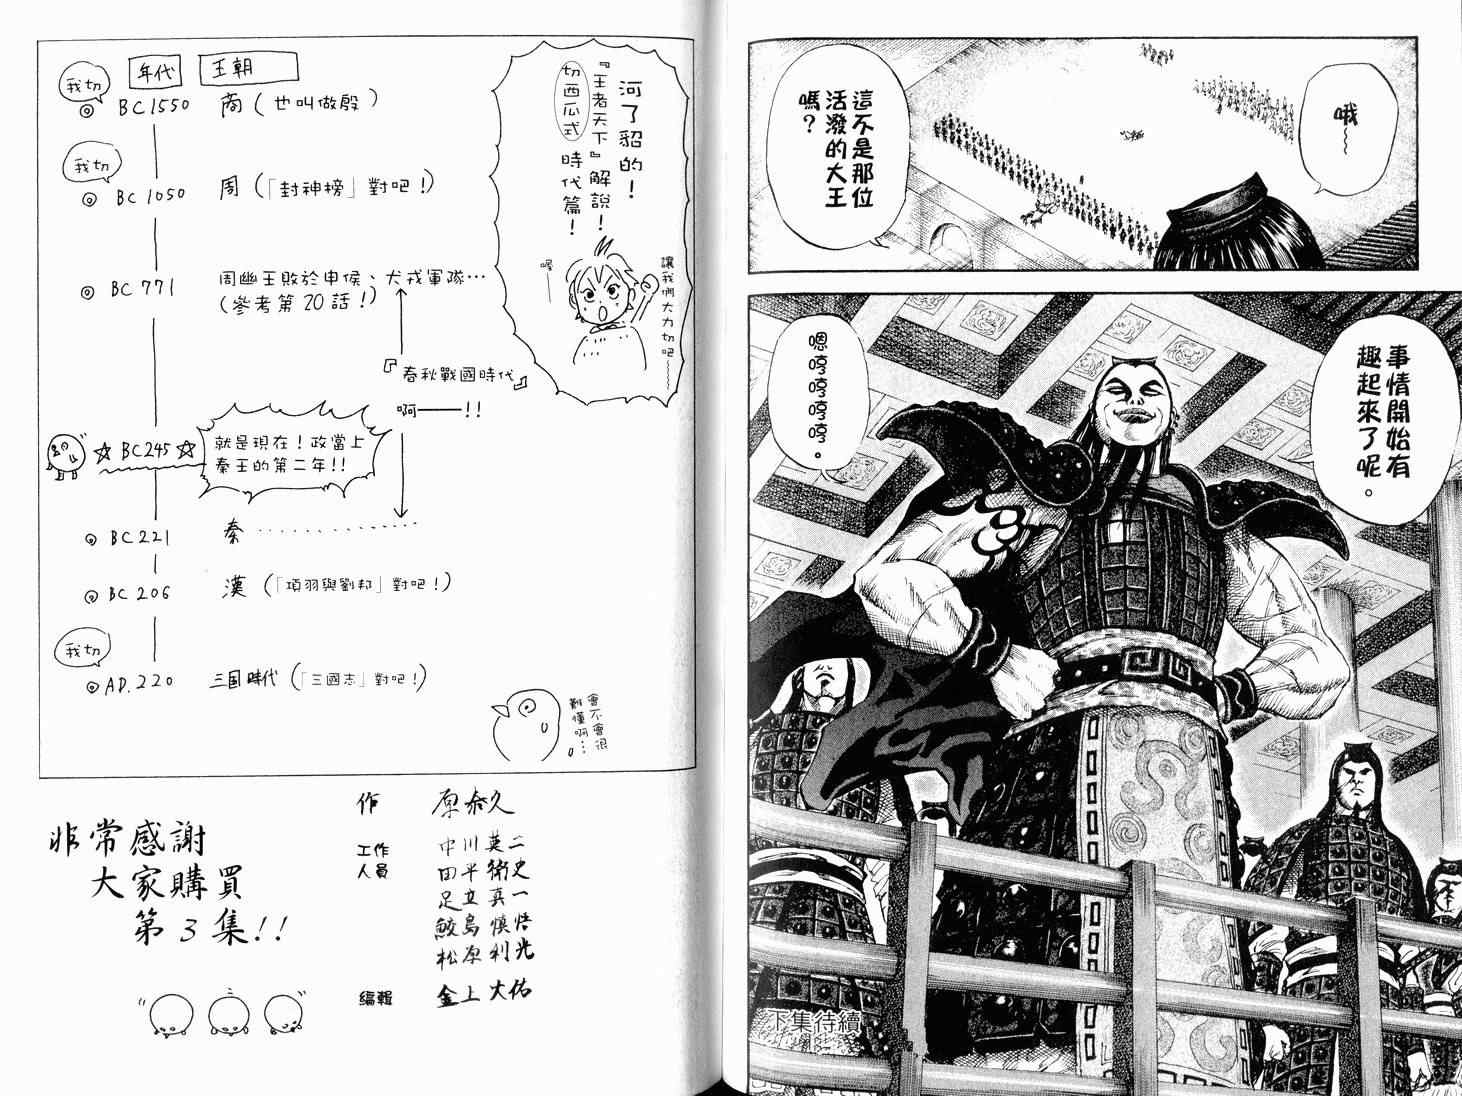 哦～
這不是那位
活潑的大王
嗎？
事情開始有
趣起來了呢。
嗯哼哼哼哼。
下集待續
河了貂的！
『王者天下』解說！
切西瓜式時代篇！
讓我們大力切吧～
喔
年代 王朝
我切
◎ BC1550 商（也叫做殷）
我切
◎ BC1050 周（「封神榜」對吧！）
◎ BC771 周幽王敗於申侯、犬戎軍隊…
（參考第20話！）
『春秋戰國時代』
啊——!!
☆BC245☆ 就是現在！政當上
秦王的第二年!!
◎ BC221 秦
◎ BC206 漢（「項羽與劉邦」對吧！）
我切
◎ AD.220 三国時代（「三國志」對吧！）
會不會很
難懂啊…
非常感謝
大家購買
第3集!!
作 原泰久
工作
人員
中川英二
田平衛史
足立真一
鮫島慎悟
松原利光
編輯 金上大佑